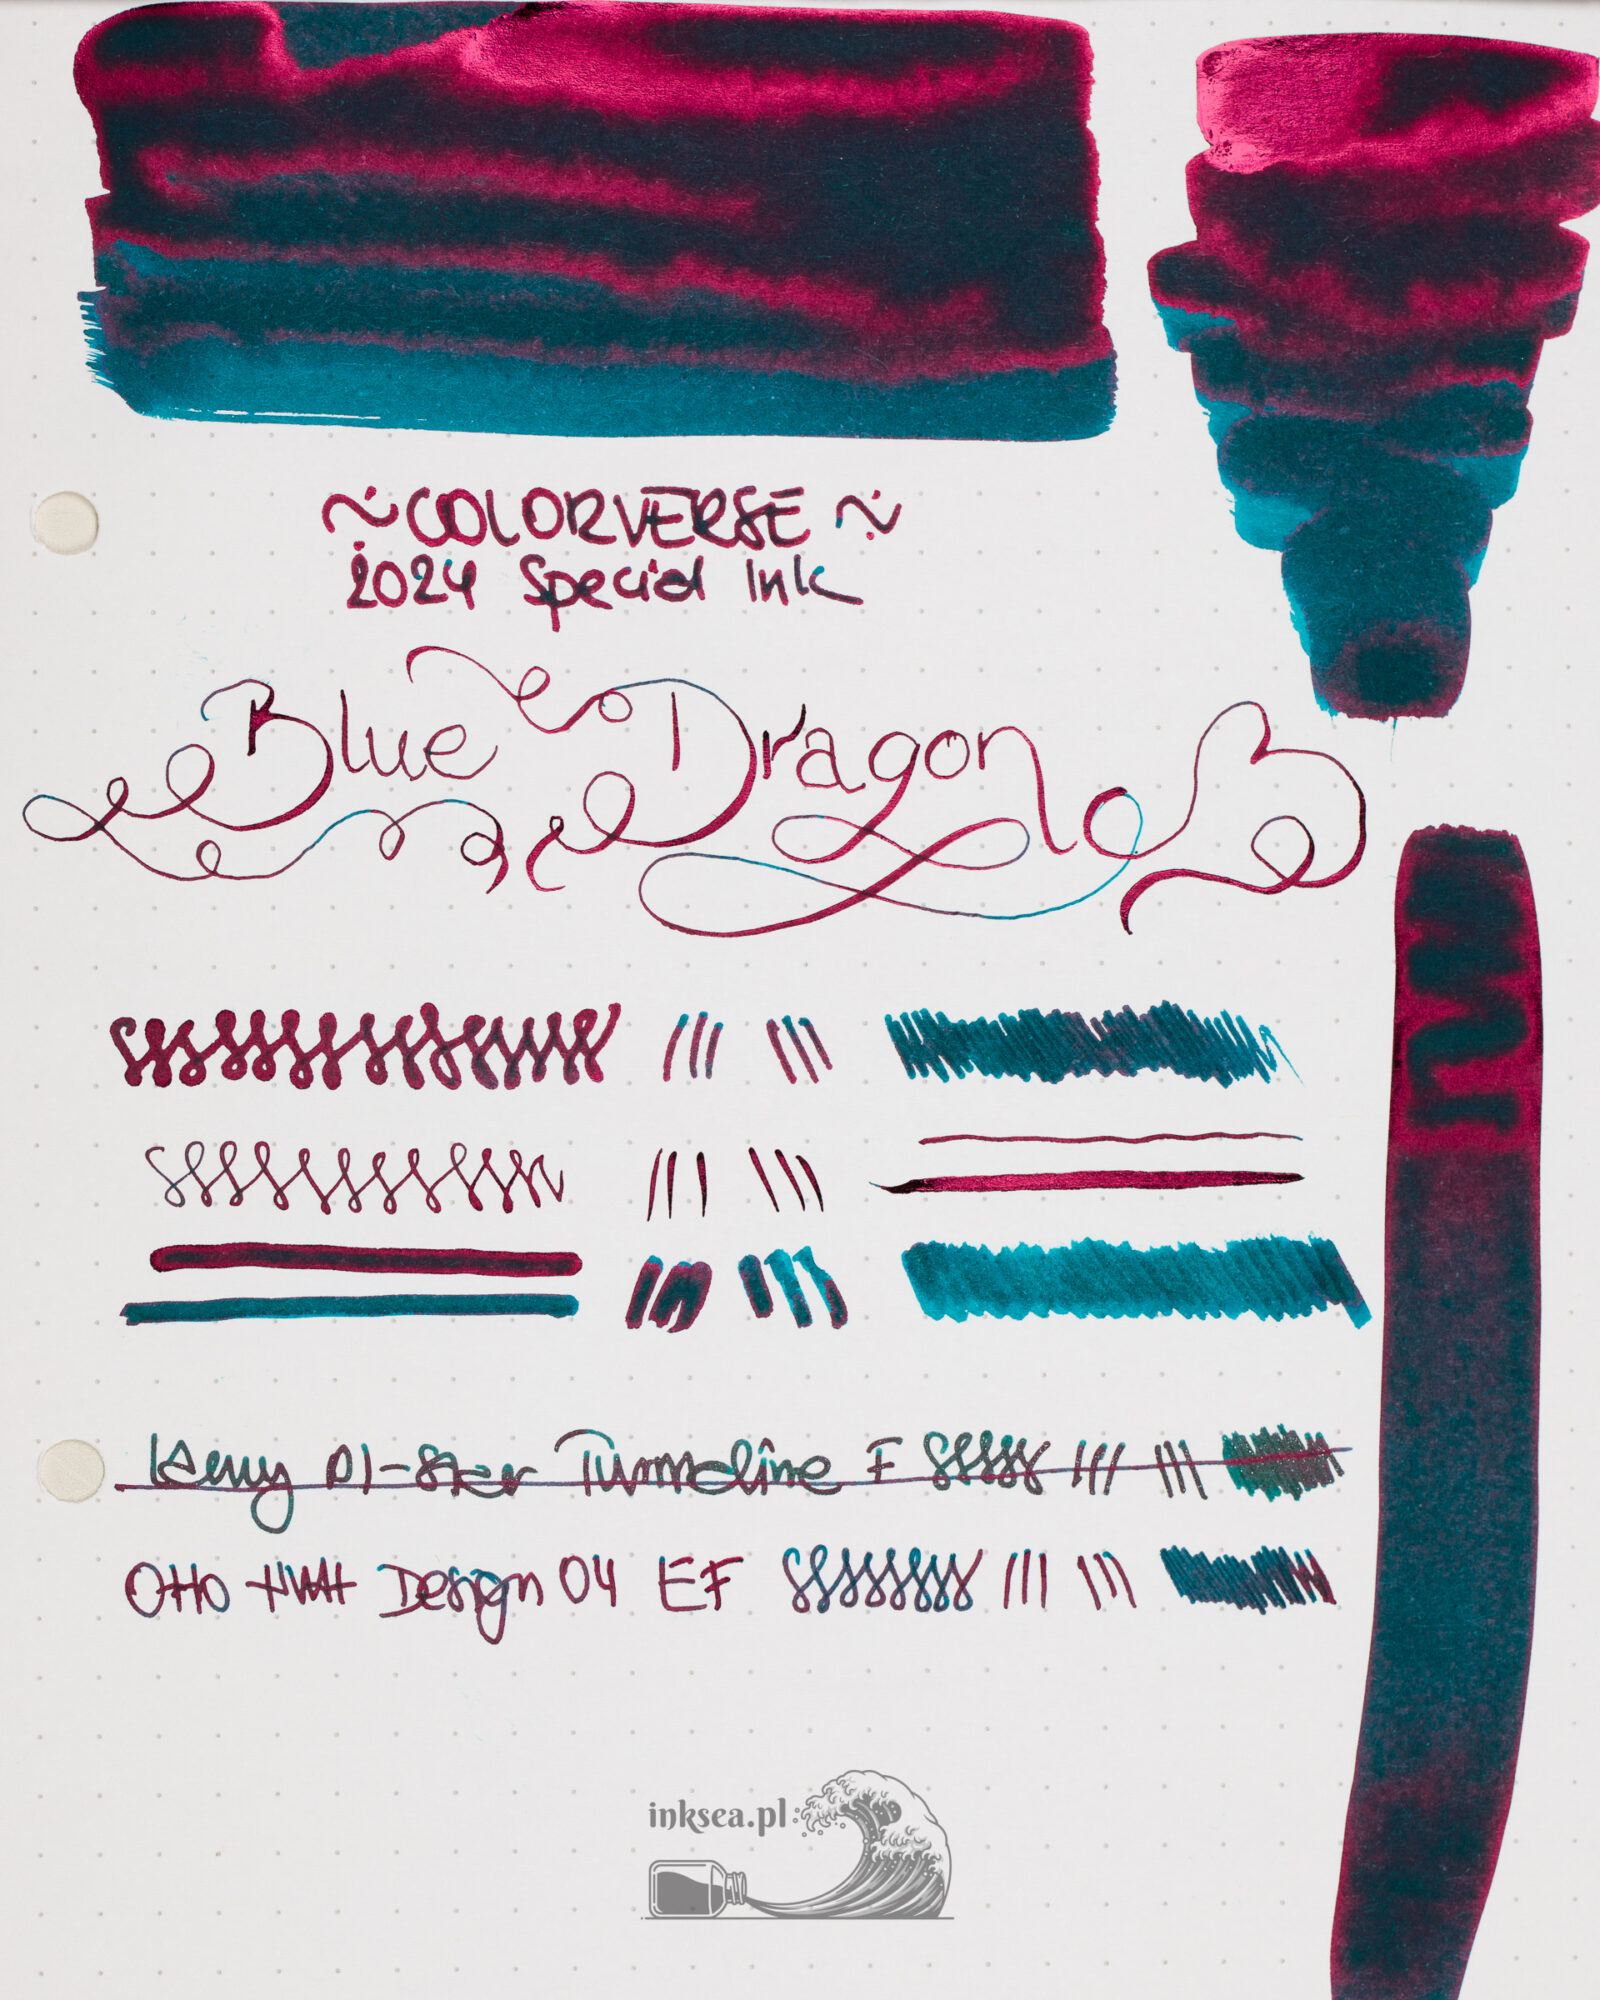 ~COLORVERSE~
2024 Special Ink
Blue Dragon
Pl-Star Turmaline F
Otto Hutt Design 04 EF
inksea.pl